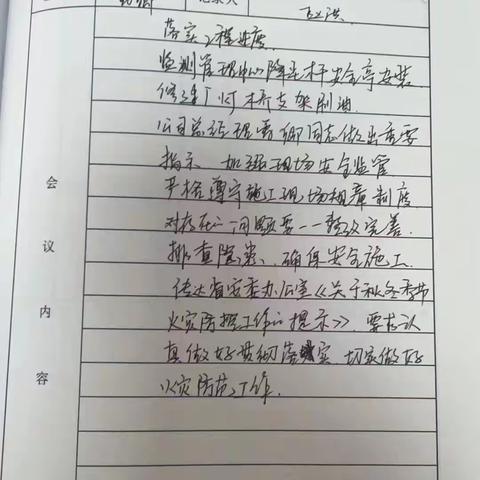 记录人
落实工程进度.
监测管理中心降尘杆安全亭安装.
修造厂灯桥支架刷油
公司总经理 同志做出重要
指示 加强现场安全监管
严格遵守施工现场规章制度
对存在的问题要一一整改完善.
排查隐患、确保安全施工.
传达省安委办公室《关于秋冬季节
火灾防控工作的提示》. 要求认
真做好贯彻落实 切实做好
火灾防范工作.
会议内容